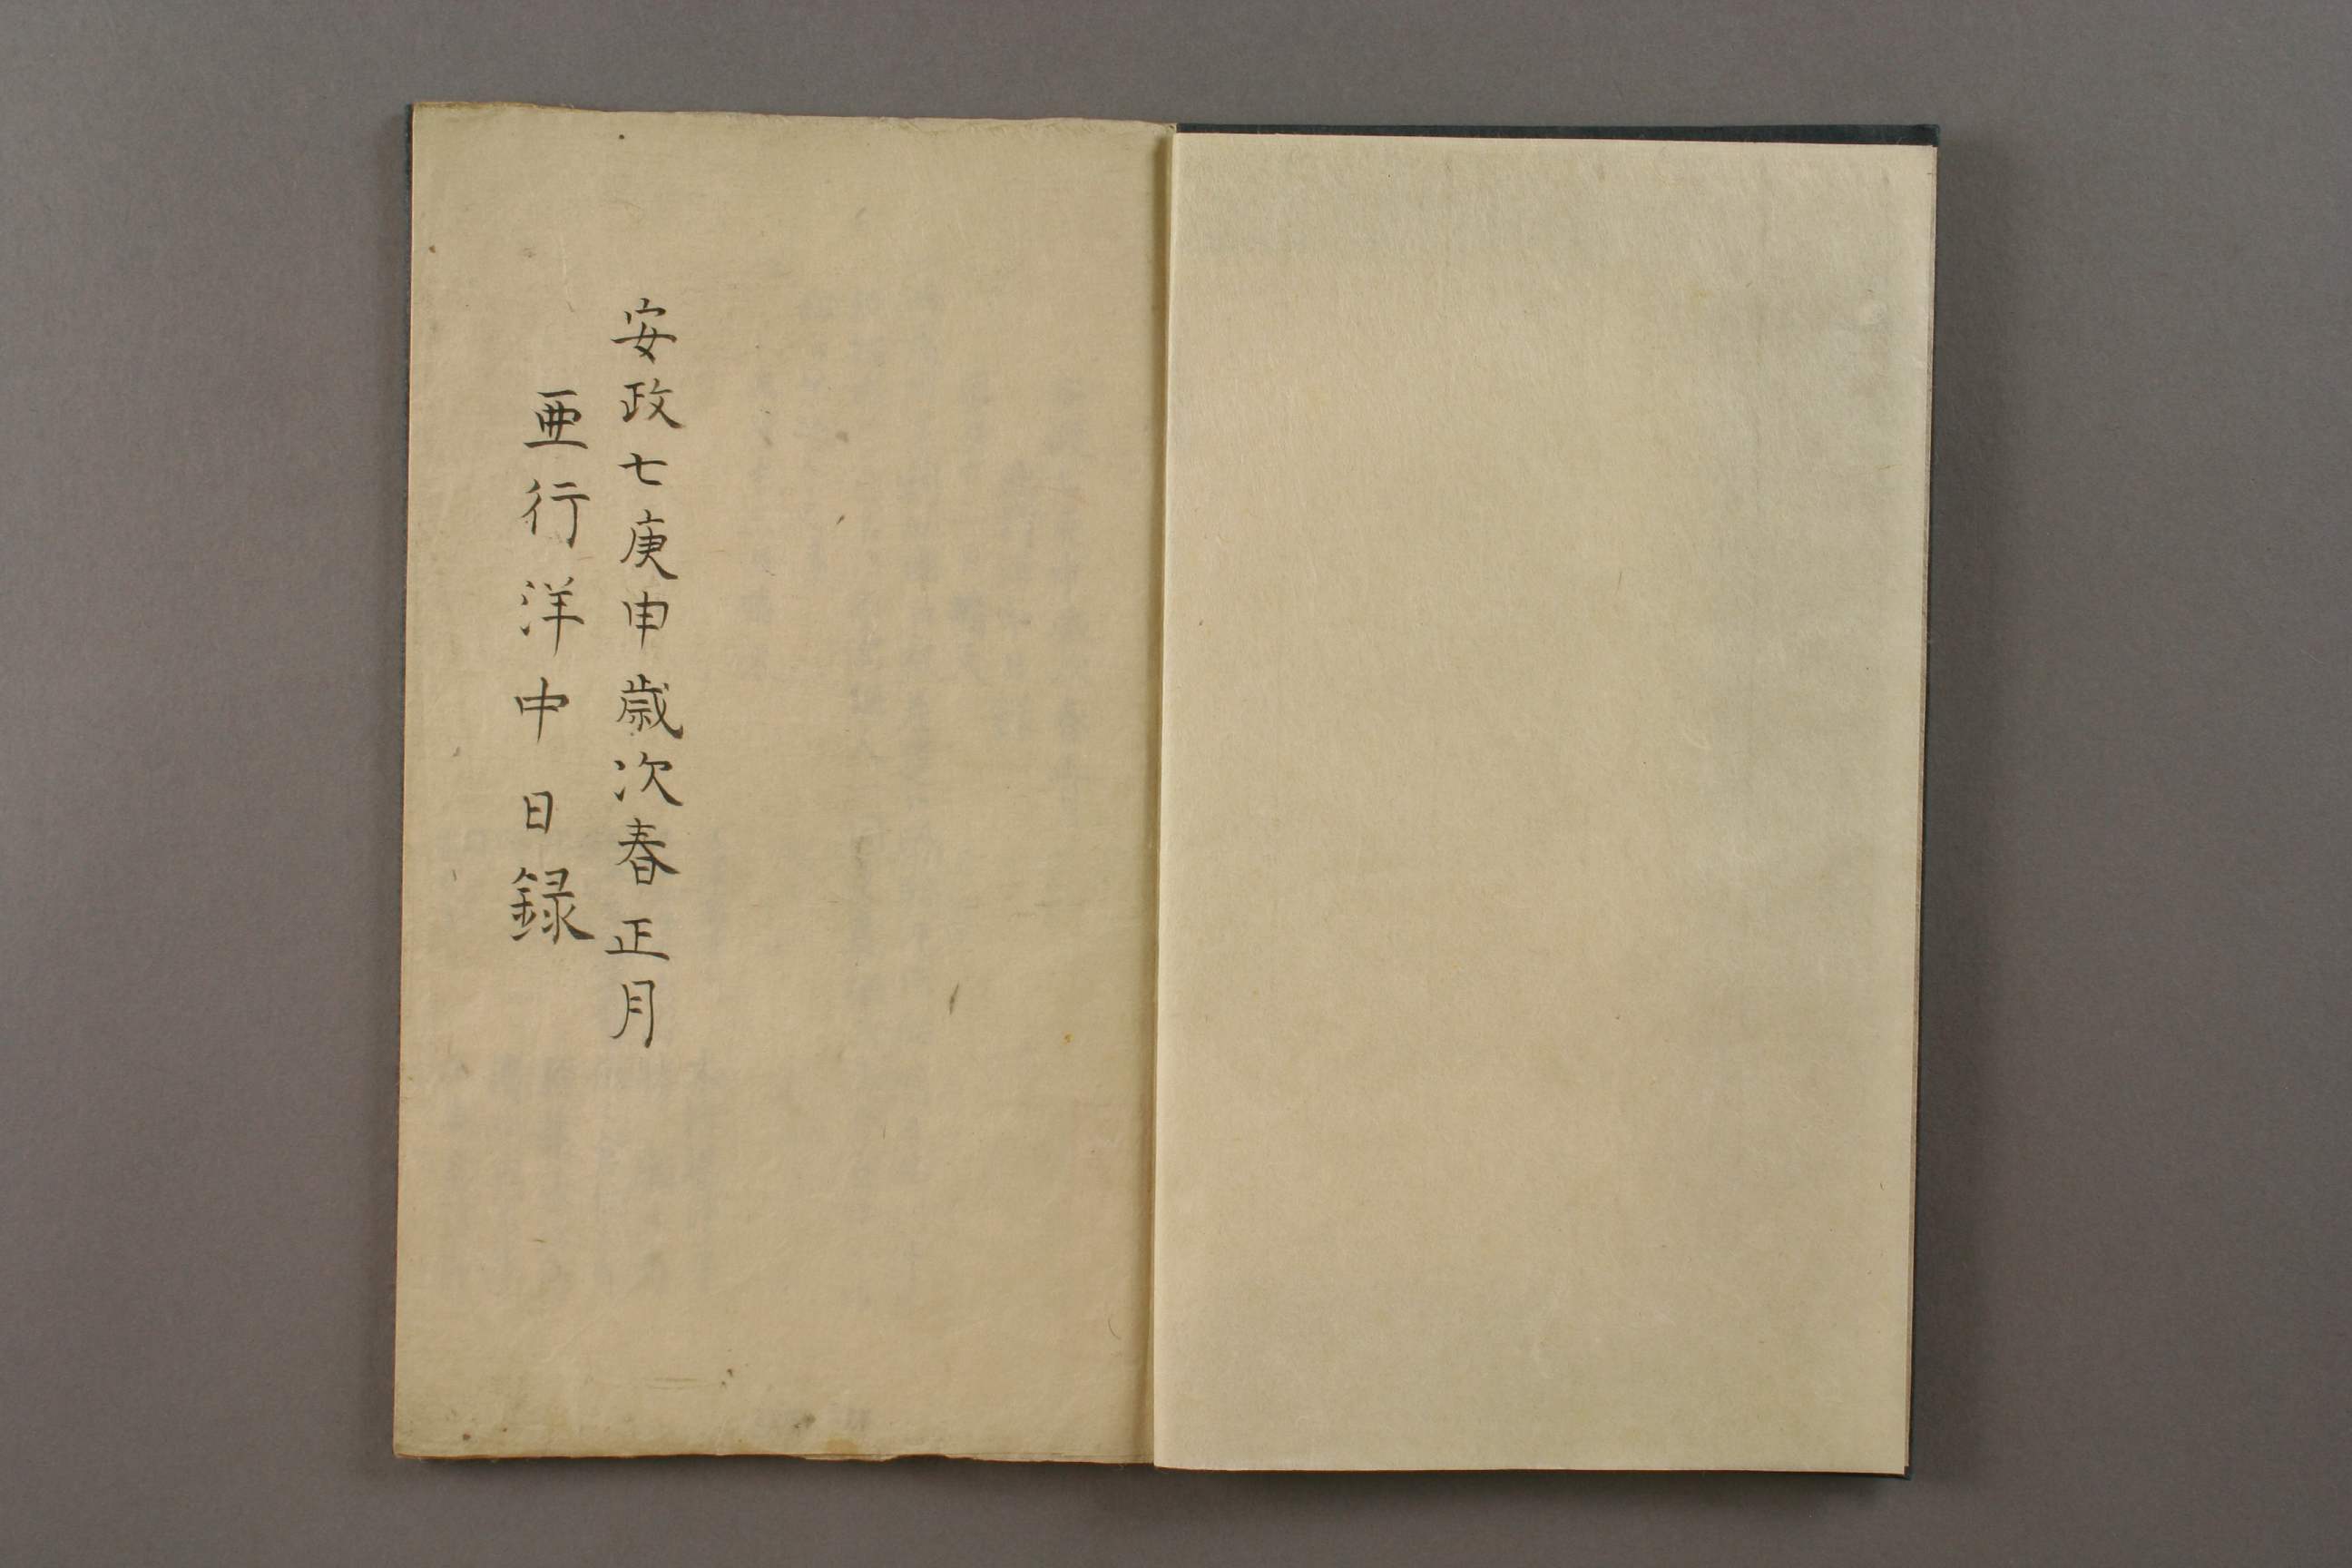 安政七庚申歳次春正月
亜行洋中日録